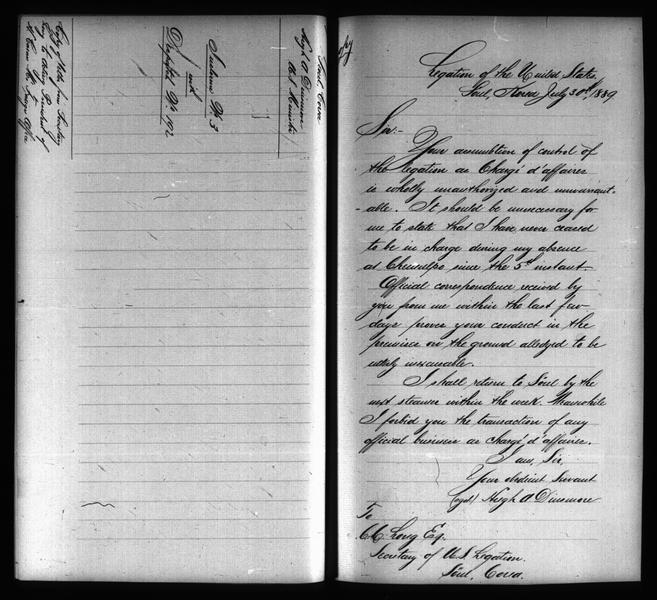 Hugh A Dinsmore
Inclosure No 3
with
Despatch No 192
Legation of the United States.
Söul, Korea July 30th, 1889.
Sir:-
Your assumption of control of
the legation as Chargé d'affaires
is wholly unauthorized and unwarrant-
-able. It should be unnecessary for
me to state that I have never ceased
to be in charge during my absence
at Chemulpo since the 5th instant.
Official correspondence received by
you from me within the last few
days proves your conduct in the
premises on the ground alledged to be
utterly inexcusable.
I shall return to Söul by the
next steamer within the week. Meanwhile
I forbid you the transaction of any
official business as chargé d'affaires.
I am, Sir,
Your obedient servant
(sgd) Hugh A Dinsmore
To
C. C. Long Esq.
Secretary of U.S. Legation.
Söul, Corea.